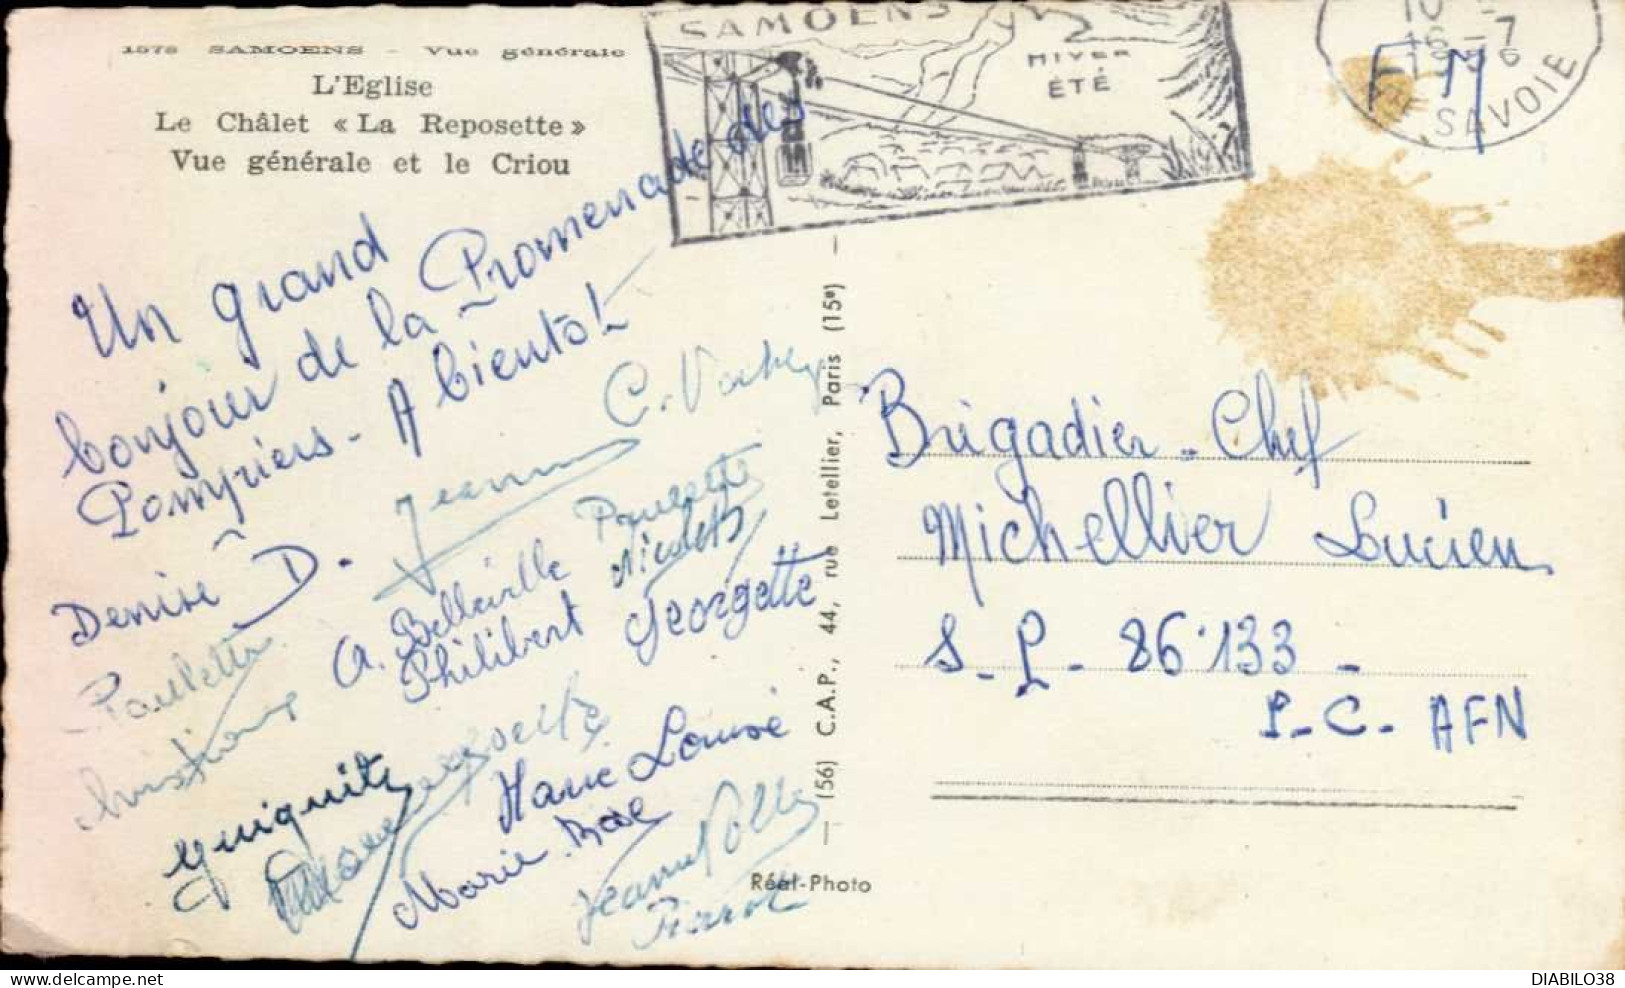 1578 SAMOENS - Vue générale
L'Eglise
Le Châlet « La Reposette »
Vue générale et le Criou
SAMOENS
HIVER
ÉTÉ
SAVOIE
F M
Un grand
bonjour de la Promenade des
Pompiers - A bientôt
Denise D.
Jeanne
Paulette
Nicolette
A. Belleville
Philibert
Georgette
Paulette
Christiane
Guiguite
Marie Louise
Marie Rose
Jeanne
Pierrot
(56) C.A.P., 44, rue Letellier, Paris (15e)
Réal-Photo
Brigadier - Chef
Michellier Lucien
S - P - 86.133 -
P - C - AFN
DIABILO38